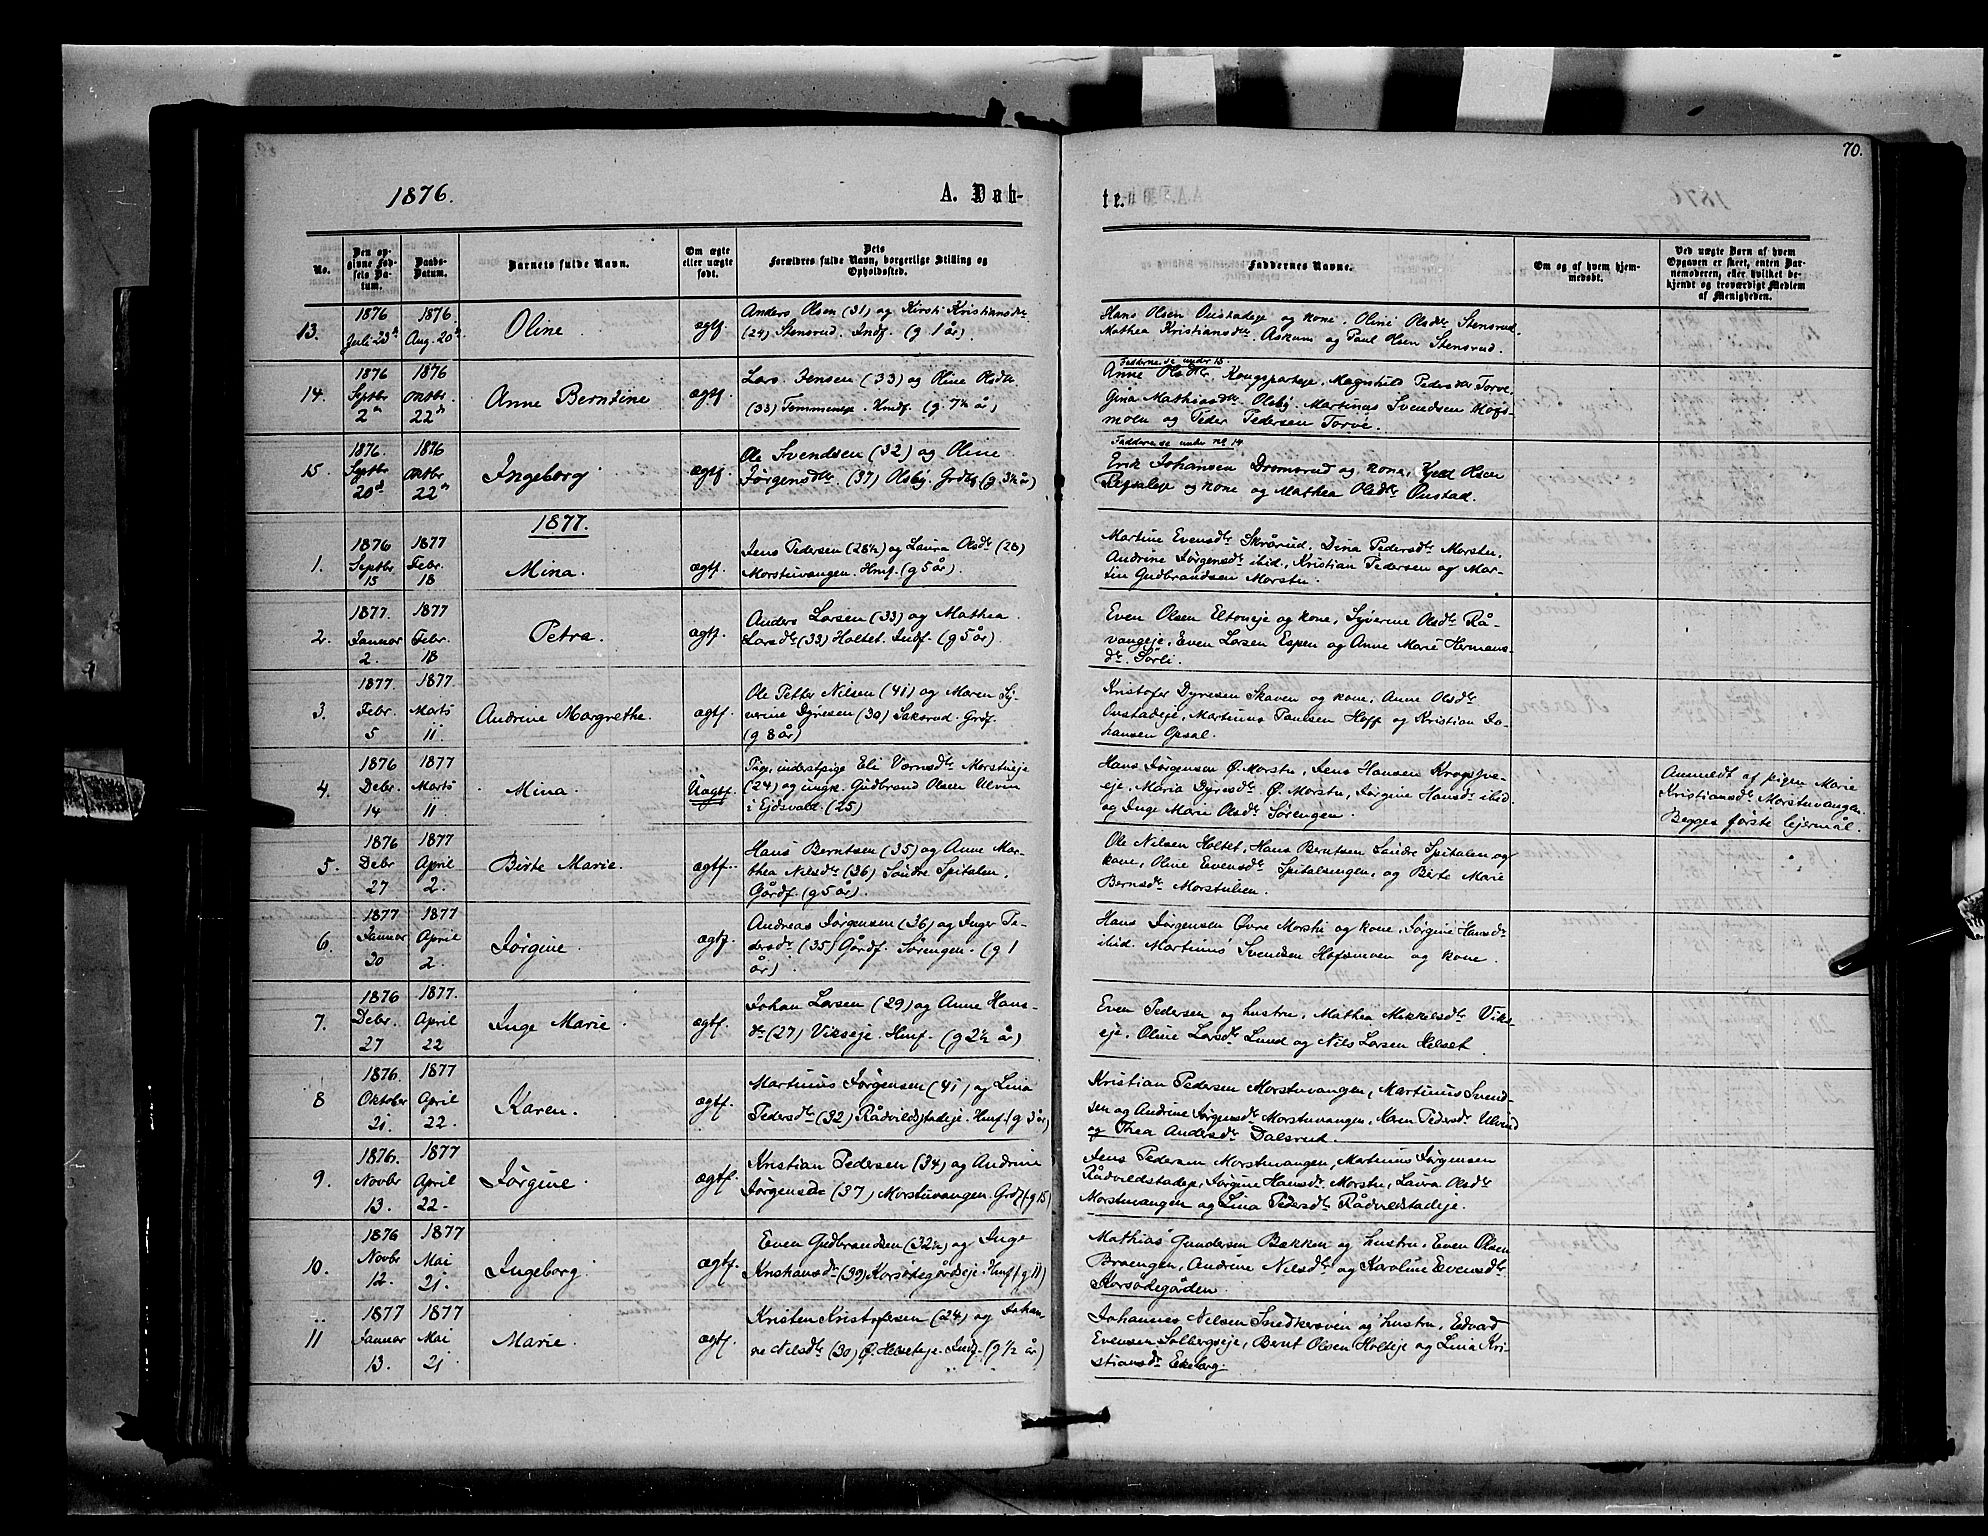 70.
1876.
A. Døb-
te.
No.
Den op-
givne Fød-
sels Da-
tum.
Daabs-
Datum.
Barnets fulde Navn.
Om ægte
eller uægte
født.
Dets
Forældres fulde Navn, borgerlige Stilling og
Opholdssted.
Faddernes Navne.
Om og af hvem hjem-
medøbt.
Ved uægte Børn af hvem
Opgaven er skeet, enten Bar-
nemoderen, eller hvilket be-
kjendt og troværdigt Medlem
af Menigheden.
13.
1876
Juli 23de
1876
Aug. 20de
Oline
ægtf
Anders Olsen (31) og Kirsti Kristiansdtr
(24) Stensrud. Indf. (g 1 år).
Hans Olsen Onstadeje og kone. Oline Olsdtr Stensrud.
Mathea Kristiansdtr Askum og Paul Olsen Stensrud.
14.
1876
Septbr
2den
1876
Oktbr.
22de
Anne Berntine
ægtf
Lars Jensen (33) og Oline Olsdtr
(33) Hmdf. (g. 7½ år)
Fadderne se under 15.
Anne Olsdtr Kongsparteje, Magnhild Pedersdtr Torve
Gina Mathiasdtr Olsby. Martinus Svendsen Hofs-
moen og Peder Pedersen Torve.
15.
1876.
Septbr
20de
1876
Oktbr
22de
Ingeborg
ægtf
Ole Svendsen (32) og Oline
Jørgensdtr. (37) Olsby. Grdbr (g 3½ år)
Fadderne se under no 14
Erik Johansen Dromsrud og kone, Olsen
og kone og Mathea Olsdtr Onstad.
1877.
1.
1876
Septbr
15
1877
Febr.
18
Mina.
ægtf.
Jens Pedersen (28½) og Laura Olsdtr (28)
Morstuvangen. Hmf. (g 5 år).
Martine Evensdtr Skrårud, Dina Pedersdtr Morstu,
Andrine Jørgensdtr ibid, Kristian Pedersen og Mar-
tin Gudbrandsen Morstu.
2.
1877.
Januar
2.
1877
Febr.
18
Petra.
ægtf.
Anders Larsen (33) og Mathea
Larsdtr (33) Holtet. Indf. (g 5 år).
Even Olsen Eltoneje og kone, Syverine Olsdtr Rå-
vangeje, Even Larsen Espen og Anne Marie Hermans-
dtr Sørli.
3.
1877.
Febr.
5
1877.
Marts
11.
Andrine Margrethe.
ægtf.
Ole Petter Nilsen (41) og Maren Sy-
verine Dyresen (30) Saksrud. Grdf.
(g 8 år)
Kristofer Dyresen Skaven og kone, Anne Olsdtr
Onstadeje, Martinus Paulsen Hoff og Kristian Jo-
hansen Opsal.
4.
1876
Debr.
14
1877
Marts
11.
Mina.
Uægtf.
Pige, inderstpige Eli Værnsdtr Morstueje
(24) og ungk. Gudbrand Olsen Ulvin
i Ejdsvold. (25)
Hans Jørgensen Ø. Morstu, Jens Hansen
eje, Maria Dyresdtr Ø. Morstu, Jørgine Hansdtr ibid
og Inge Marie Olsdtr Sørengen.
Anmeldt af pigen Marie
Kristiansdtr Morstuvangen.
Begges første lejermål.
5.
1876
Debr
27
1877
April
2.
Birte Marie.
ægtf.
Hans Berntsen (35) og Anne Mar-
thea Nilsdtr (36) Søndre Spitalen.
Gårdf. (g 5 år).
Ole Nilsen Holtet, Hans Berntsen Søndre Spitalen og
kone, Oline Evensdtr Spitalsengen, og Birte Marie
Bernsdtr Morstulien.
6.
1877
Januar
30
1877
April
2.
Jørgine.
ægtf.
Andreas Jørgensen (36) og Inger Pe-
dersdtr (35) Gårdf. Sørengen. (g 1
år)
Hans Jørgensen Øvre Morstu og kone, Jørgine Hansdtr
ibid. Martinus Svendsen Hofsmoen og kone.
7.
1876
Debr.
27
1877.
April
22
Inge Marie.
ægtf.
Johan Larsen (29) og Anne Hans-
dtr (27) Vikseje. Hmf. (g 2½ år)
Even Pedersen og hustru, Mathea Mikkelsdtr Viks-
eje, Oline Larsdtr Lund og Nils Larsen Helset.
8
1876.
Oktober
21.
1877
April
22.
Karen.
ægtf.
Martinus Jørgensen (41) og Lina
Pedersdtr (32) Rådvildstadeje. Hmf. (g 3 år)
Kristian Pedersen Morstuvangen, Martinus Svend-
sen og Andrine Jørgensdtr Morstuvangen, Karen Pedersdtr Ulvind
og Thea Andersdtr Dalsrud.
9.
1876.
Novbr
13.
1877
April
22.
Jørgine.
ægtf.
Kristian Pedersen (34) og Andrine
Jørgensdtr (37) Morstuvangen. Grdf. (g 15)
Jens Pedersen Morstuvangen, Martinus Jørgensen
Rådvildstadeje, Jørgine Hansdtr Morstu, Laura Olsdtr
Morstuvangen og Lina Pedersdtr Rådvildstadeje.
10.
1876
Novbr
12.
1877
Mai
21.
Ingeborg.
ægtf.
Even Gudbrandsen (32½) og Inge
Kristiansdtr (39) Korsødegårdseje. Hmf. (g 11)
Mathias Gundersen Bækken og hustru, Even Olsen
Braengen, Andrine Nilsdtr og Karoline Evensdtr
Korsødegården.
11
1877
Januar
13.
1877
Mai
21.
Marie.
ægtf.
Kristen Kristofersen (24) og Johan-
ne Nilsdtr (30) Ø. Helseteje. Indf. (g ½ år)
Johannes Nilsen Snedkersven og hustru, Edvard
Evensen Solbergseje, Bernt Olsen Holteje og Lina Kri-
stiansdtr Ekeberg.